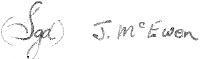 (Sgd) J. McEwen